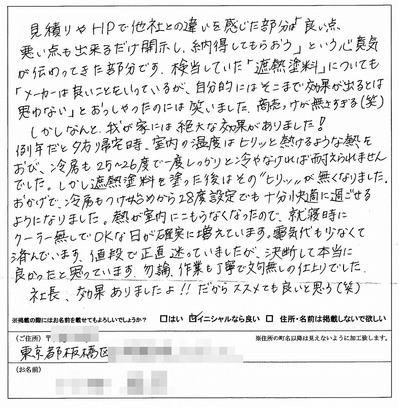 見積りやHPで他社との違いを感じた部分は「良い点、
悪い点も出来るだけ開示し、納得してもらおう」という心意気
が伝わってきた部分です。検当していた「遮熱塗料」についても
「メーカーは良いことをいっているが、自分的にはそこまで効果が出るとは
思わない」とおっしゃったのには笑いました。商売っ気が無さすぎる(笑)
しかしなんと、我が家には絶大な効果がありました!
例年だと夕方帰宅時、室内の温度はヒリッと熱けるような熱を
おび、冷房も25〜26度で一度しっかりと冷やなければ耐えられません
でした。しかし遮熱塗料を塗った後はその"ヒリッ"が無くなりました。
おかげで、冷房もつけはじめから28度設定でも十分快適に過ごせる
ようになりました。熱が室内にこもらなくなったので、就寝時に
クーラー無しでOKな日が確実に増えています。電気代も少なくて
済んでいます。値段で正直迷っていましたが、決断して本当に
良かったと思っています。勿論、作業も丁寧で文句無しの仕上りでした。
社長、効果ありましたよ!!だからススメても良いと思う(笑)
※掲載の際にはお名前を載せてもよろしいでしょうか? □はい ☑イニシャルなら良い □住所・名前は掲載しないで欲しい
(ご住所) 〒 ※住所の町名以降は見えないように加工致します。
東京都板橋区
(お名前)